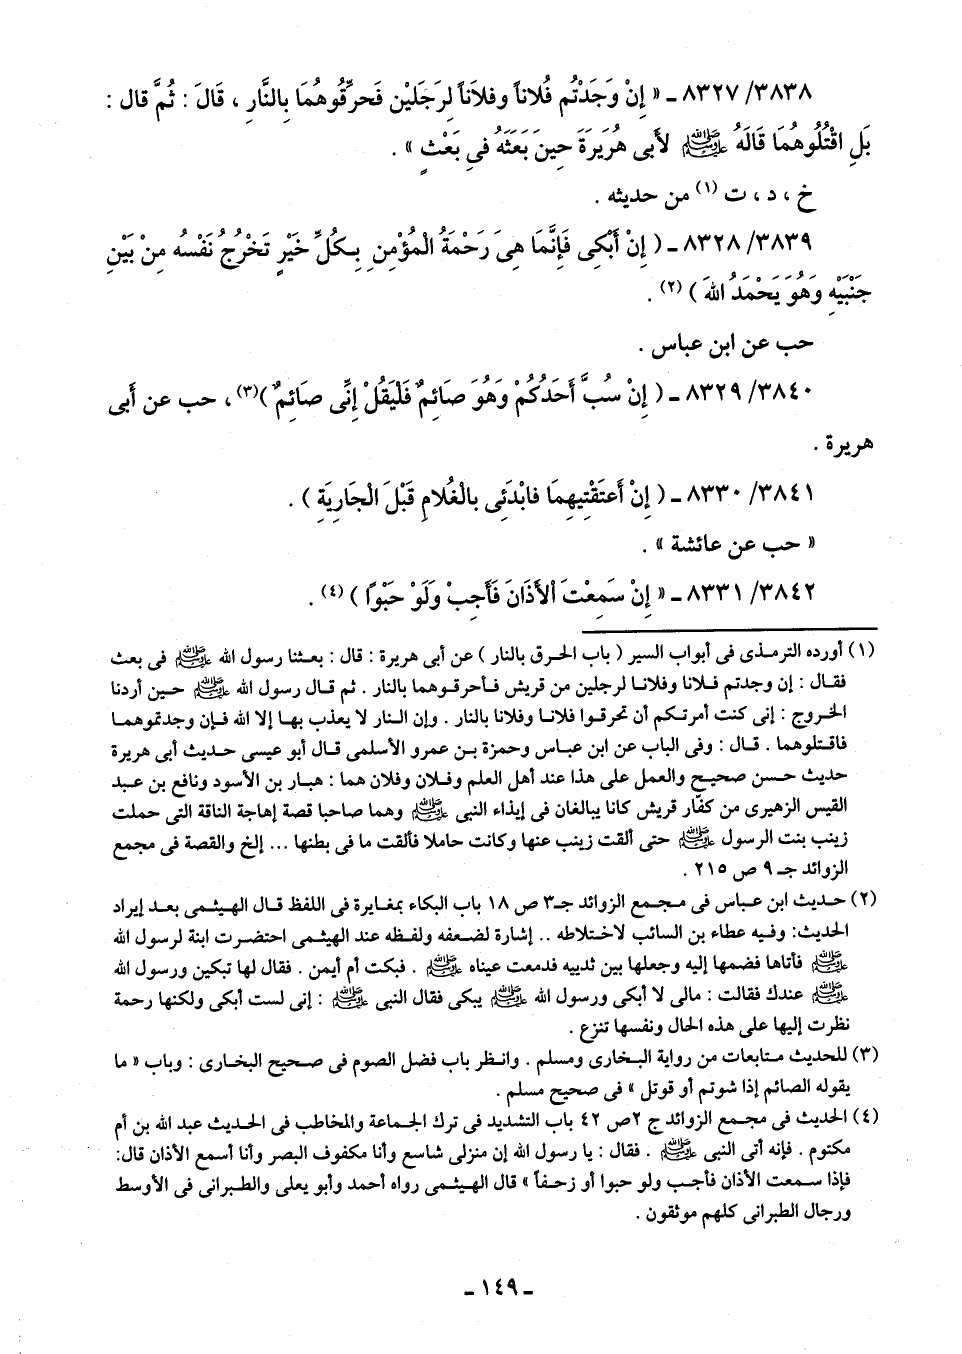 ٣٨٣٨/ ٨٣٢٧ ـ « إِنْ وَجَدْتُم فُلاناً وفلاَناً لِرَجَلَيْن فَحرِّقُوهُمَا بِالنَّارِ ، قَالَ : ثُمَّ قال :
بَلِ اقْتُلُوهُمَا قَالَهُ ﷺ لأَبى هُرَيرَةَ حِينَ بَعَثَهُ فىِ بَعْثٍ » .
خ ، د ، ت (١) من حديثه .
٣٨٣٩/ ٨٣٢٨ ـ ( إِنْ أَبْكِى فَإِنَّمَا هِىَ رَحْمَةُ الْمُؤْمِنِ بِكُلِّ خَيْرٍ تَخْرُجُ نَفْسُه مِنْ بَيْنِ
جَنْبَيْهِ وَهُوَ يَحْمَدُ اللهَ ) (٢) .
حب عن ابن عباس .
٣٨٤٠/ ٨٣٢٩ ـ ( إِنْ سُبَّ أَحَدُكُمْ وَهُوَ صَائِمٌ فَلْيَقُلْ إِنِّى صَائِمٌ )(٣) ، حب عن أَبى
هريرة .
٣٨٤١/ ٨٣٣٠ ـ ( إِنْ أَعتَقْتِيهِمَا فابْدَئِى بالْغُلامِ قَبْلَ الْجَارِيَةِ ) .
« حب عن عائشة » .
٣٨٤٢/ ٨٣٣١ ـ « إِنْ سَمِعْتَ الأَذَانَ فَأَجِبْ وَلَوْ حَبْوًا ) (٤) .
(١) أورده الترمذى فى أبواب السير ( باب الحرق بالنار ) عن أبى هريرة : قال : بعثنا رسول الله ﷺ فى بعث
فقال : إن وجدتم فلانا وفلانا لرجلين من قريش فأحرقوهما بالنار . ثم قال رسول الله ﷺ حين أردنا
الخروج : إنى كنت أمرتكم أن تحرقوا فلانا وفلانا بالنار . وإن النار لا يعذب بها إلا الله فإن وجدتموهما
فاقتلوهما . قال : وفى الباب عن ابن عباس وحمزة بن عمرو الأسلمى قال أبو عيسى حديث أبى هريرة
حديث حسن صحيح والعمل على هذا عند أهل العلم وفلان وفلان هما : هبار بن الأسود ونافع بن عبد
القيس الزهيرى من كفار قريش كانا يبالغان فى إيذاء النبى ﷺ وهما صاحبا قصة إهاجة الناقة التى حملت
زينب بنت الرسول ﷺ حتى ألقت زينب عنها وكانت حاملا فألقت ما فى بطنها ... إلخ والقصة فى مجمع
الزوائد جـ ٩ ص ٢١٥ .
(٢) حديث ابن عباس فى مجمع الزوائد جـ٣ ص ١٨ باب البكاء بمغايرة فى اللفظ قال الهيثمى بعد إيراد
الحديث: وفيه عطاء بن السائب لاختلاطه .. إشارة لضعفه ولفظه عند الهيثمى احتضرت ابنة لرسول الله
ﷺ فأتاها فضمها إليه وجعلها بين ثدييه فدمعت عيناه ﷺ . فبكت أم أيمن . فقال لها تبكين ورسول الله
ﷺ عندك فقالت : مالى لا أبكى ورسول الله ﷺ يبكى فقال النبى ﷺ : إنى لست أبكى ولكنها رحمة
نظرت إليها على هذه الحال ونفسها تنزع .
(٣) للحديث متابعات من رواية البخارى ومسلم . وانظر باب فضل الصوم فى صحيح البخارى : وباب « ما
يقوله الصائم إذا شوتم أو قوتل » فى صحيح مسلم .
(٤) الحديث فى مجمع الزوائد ج ٢ص ٤٢ باب التشديد فى ترك الجماعة والمخاطب فى الحديث عبد الله بن أم
مكتوم . فإنه أتى النبى ﷺ . فقال : يا رسول الله إن منزلى شاسع وأنا مكفوف البصر وأنا أسمع الأذان قال:
فإذا سمعت الأذان فأجب ولو حبوا أو زحفاً » قال الهيثمى رواه أحمد وأبو يعلى والطبرانى فى الأوسط
ورجال الطبرانى كلهم موثقون .
ـ ١٤٩ ـ